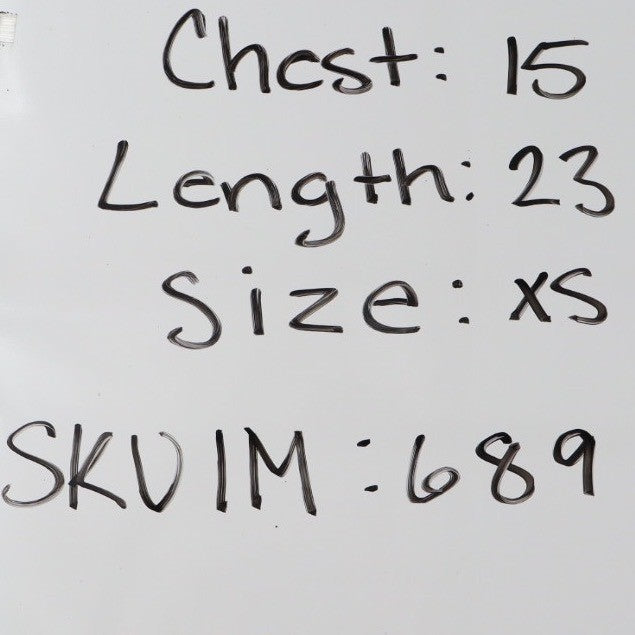 Chest: 15
Length: 23
Size: XS
SKU IM: 689